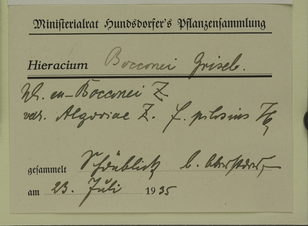 Ministerialrat Hundsdorfer's Pflanzensammlung
Hieracium Bocconei Griseb.
eu-Bocconei Z.
var. Algoviae Z. f. pilosius
gesammelt Schönblick b. Oberstdorf
am 23. Juli 1935